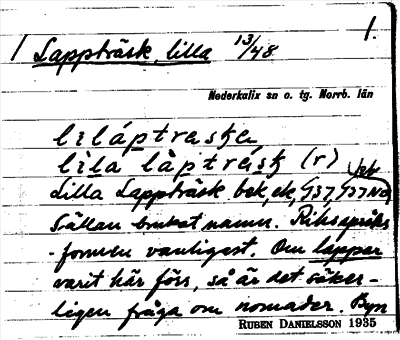 1.
/ Lappträsk, lilla 13/48
Nederkalix sn o. tg. Norrb. län
liláptraska
lila lápträsk (r)
Lilla Lappträsk bek, ek, G37, G37 NO
Sällan brukat namn. Riksspråks
-formen vanligast. Om lappar
varit här förr, så är det säker-
ligen fråga om nomader. Byn
RUBEN DANIELSSON 1935